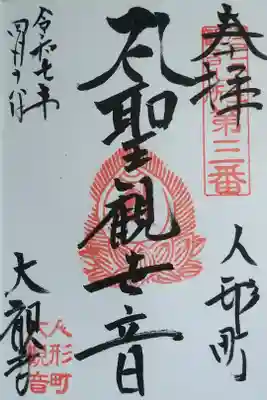 奉拝
第三番
人形町
聖観世音
令和七年
四月十八日
大観
人形町
大観音